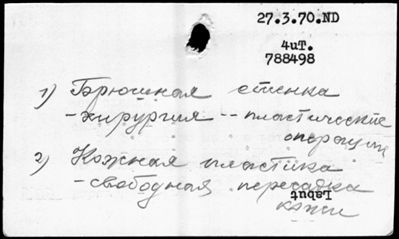 27.3.70.ND
4uT.
788498
1) Брюшная стенка
-хирургия -- пластические
операции
2) Кожная пластика
-свободная пересадка
Labut
кожи